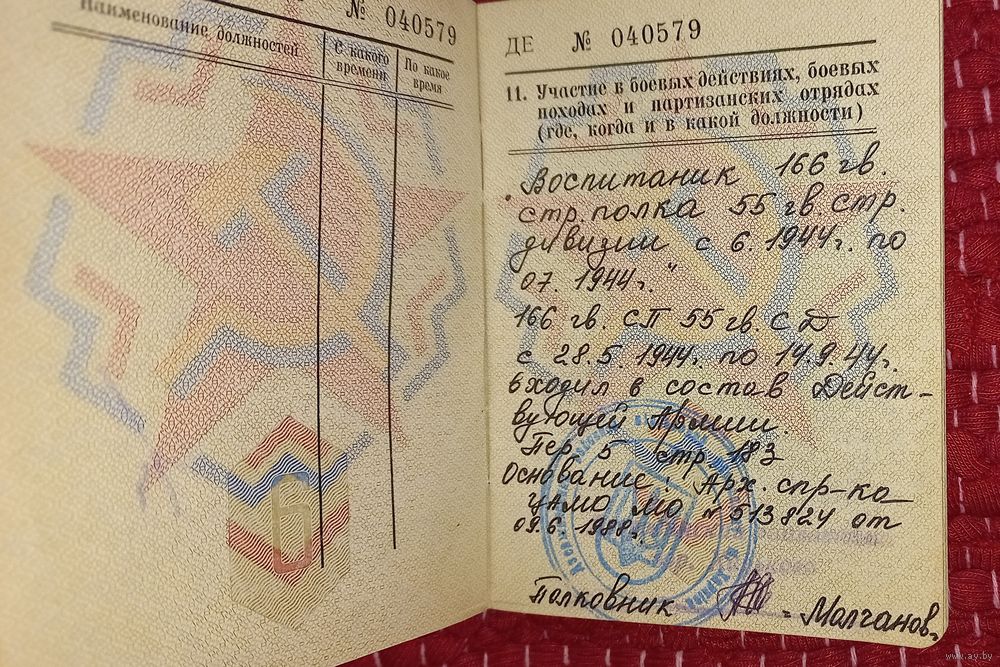 № 040579
Наименование должностей
С какого времени
По какое время
ДЕ № 040579
11. Участие в боевых действиях, боевых
походах и партизанских отрядах
(где, когда и в какой должности)
"Воспитаник 166 гв.
стр. полка 55 гв. стр.
дивизии с 6. 1944г. по
07. 1944г."
166 гв. СП 55 гв. СД
с 28.5. 1944г. по 14.9.44г.
входил в состав Дейст-
вующей Армии.
Пер. 5 стр. 183
Основание Арх. спр-ка
ЦАМО МО №513824 от
09.6.1988г.
Полковник - Молчанов.
www.ay.by